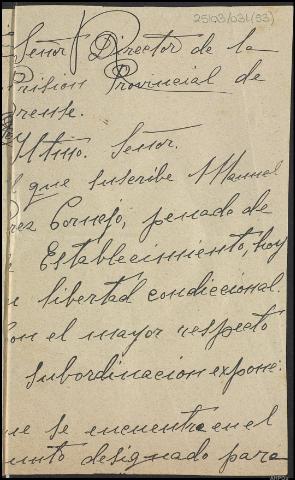 25103/031(93)
Señor Director de la
Prision Provincial de
Orense.
Iltmo. Señor.
l que suscribe Manuel
rez Cornejo, penado de
Establecimiento, hoy
libertad condiccional.
on el mayor respecto
subordinacion expone:
ue se encuentra en el
unto designado para